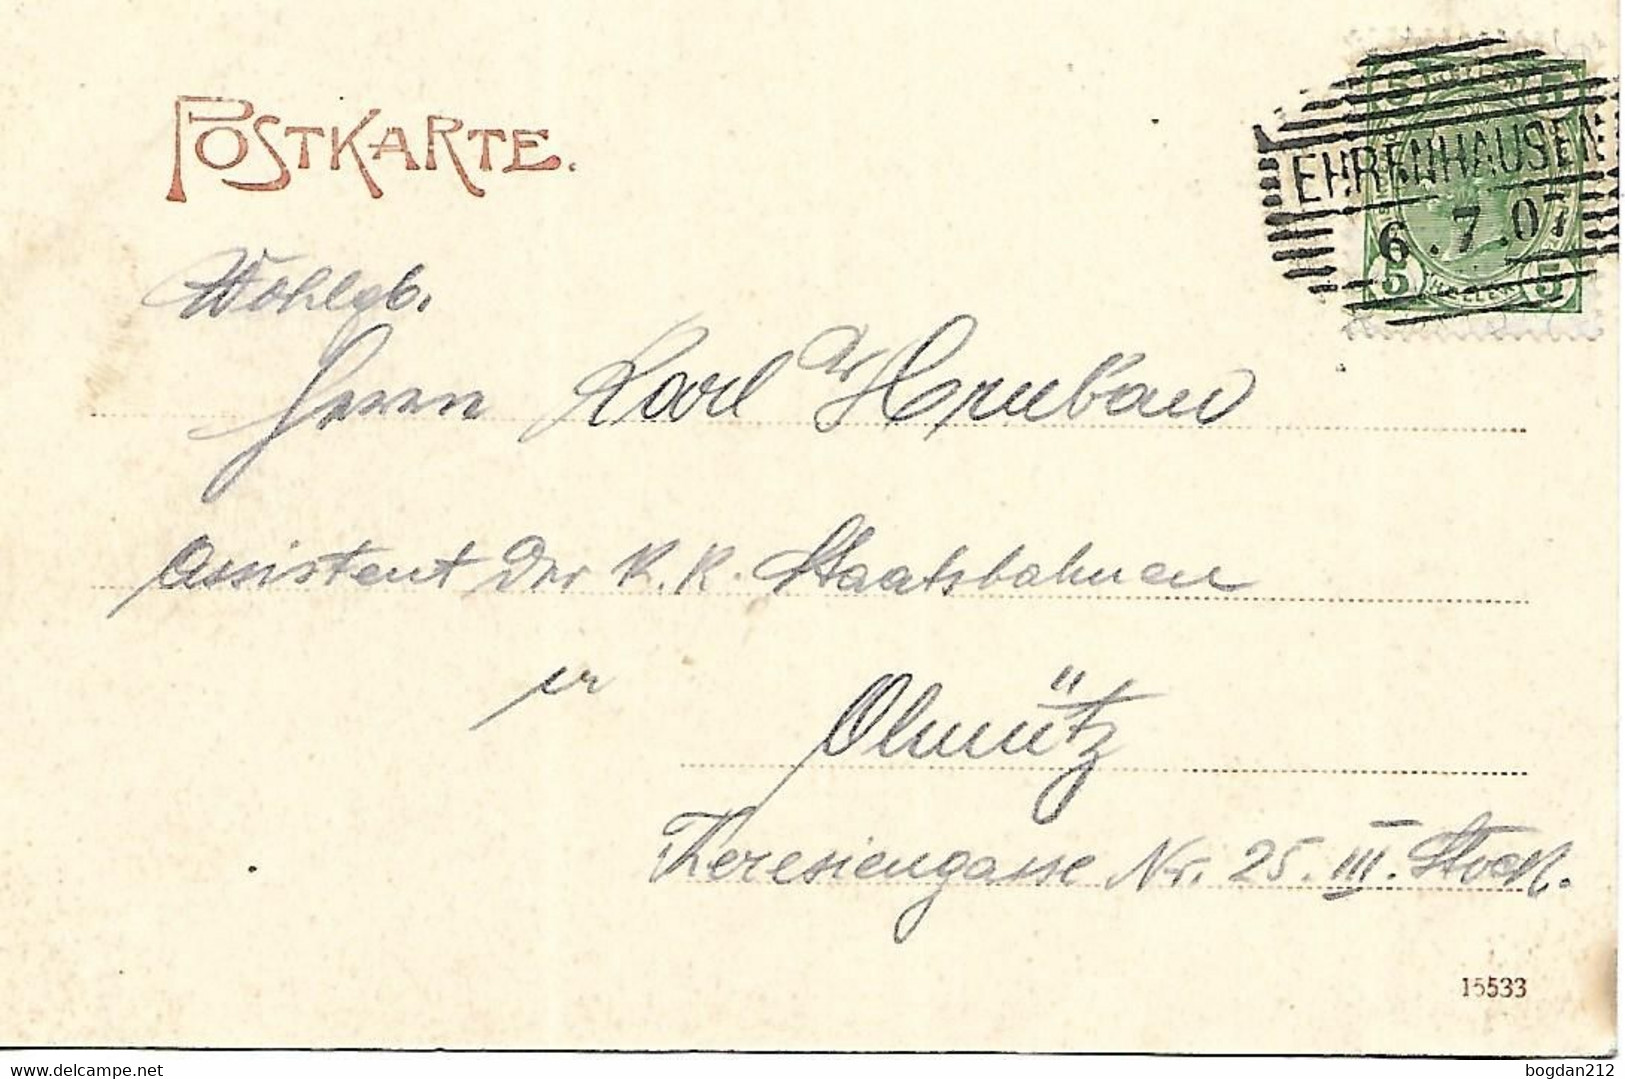 POSTKARTE.
5 5
EHRENHAUSEN
6.7.07
5 HELLER 5
Wohlgb.
Herrn Karl Hrubau
Assistent der K. K. Staatsbahnen
in Olmütz
Theresiengasse Nr. 25. III. Stock.
15533
www.delcampe.net
bogdan212